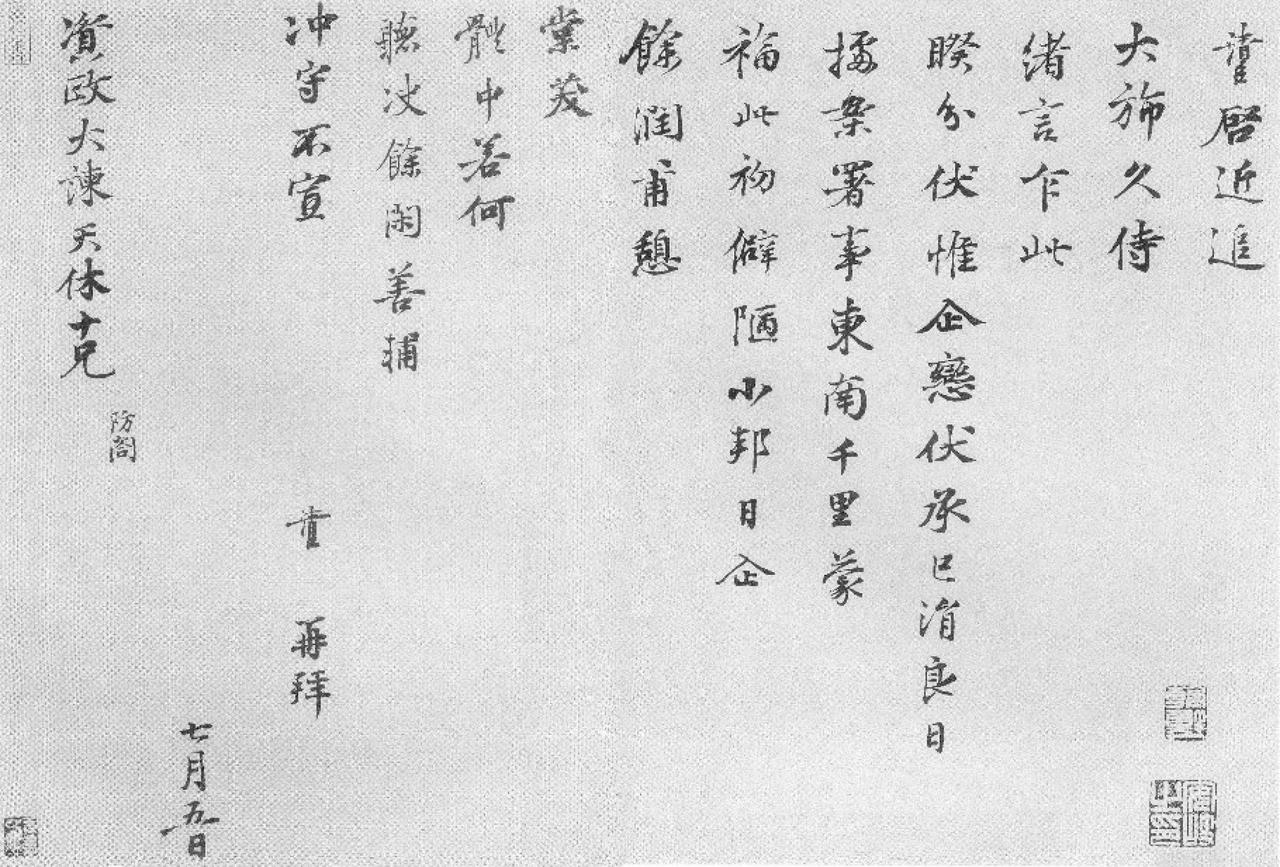 啓近追
大斾久侍
緒言乍此
睽分伏惟企戀伏承已涓良日
據案署事東南千里蒙
福此初僻陋小邦日企
餘潤甫憩
棠茇
體中若何
聽決餘閑善捕
冲守不宣 再拜
七月五日
資政大諫天休十兄
防閤